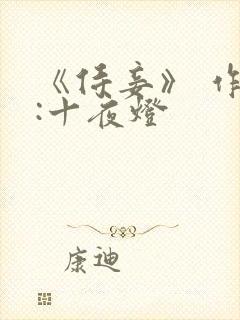 《侍妾》 作
:十夜燈
康迪